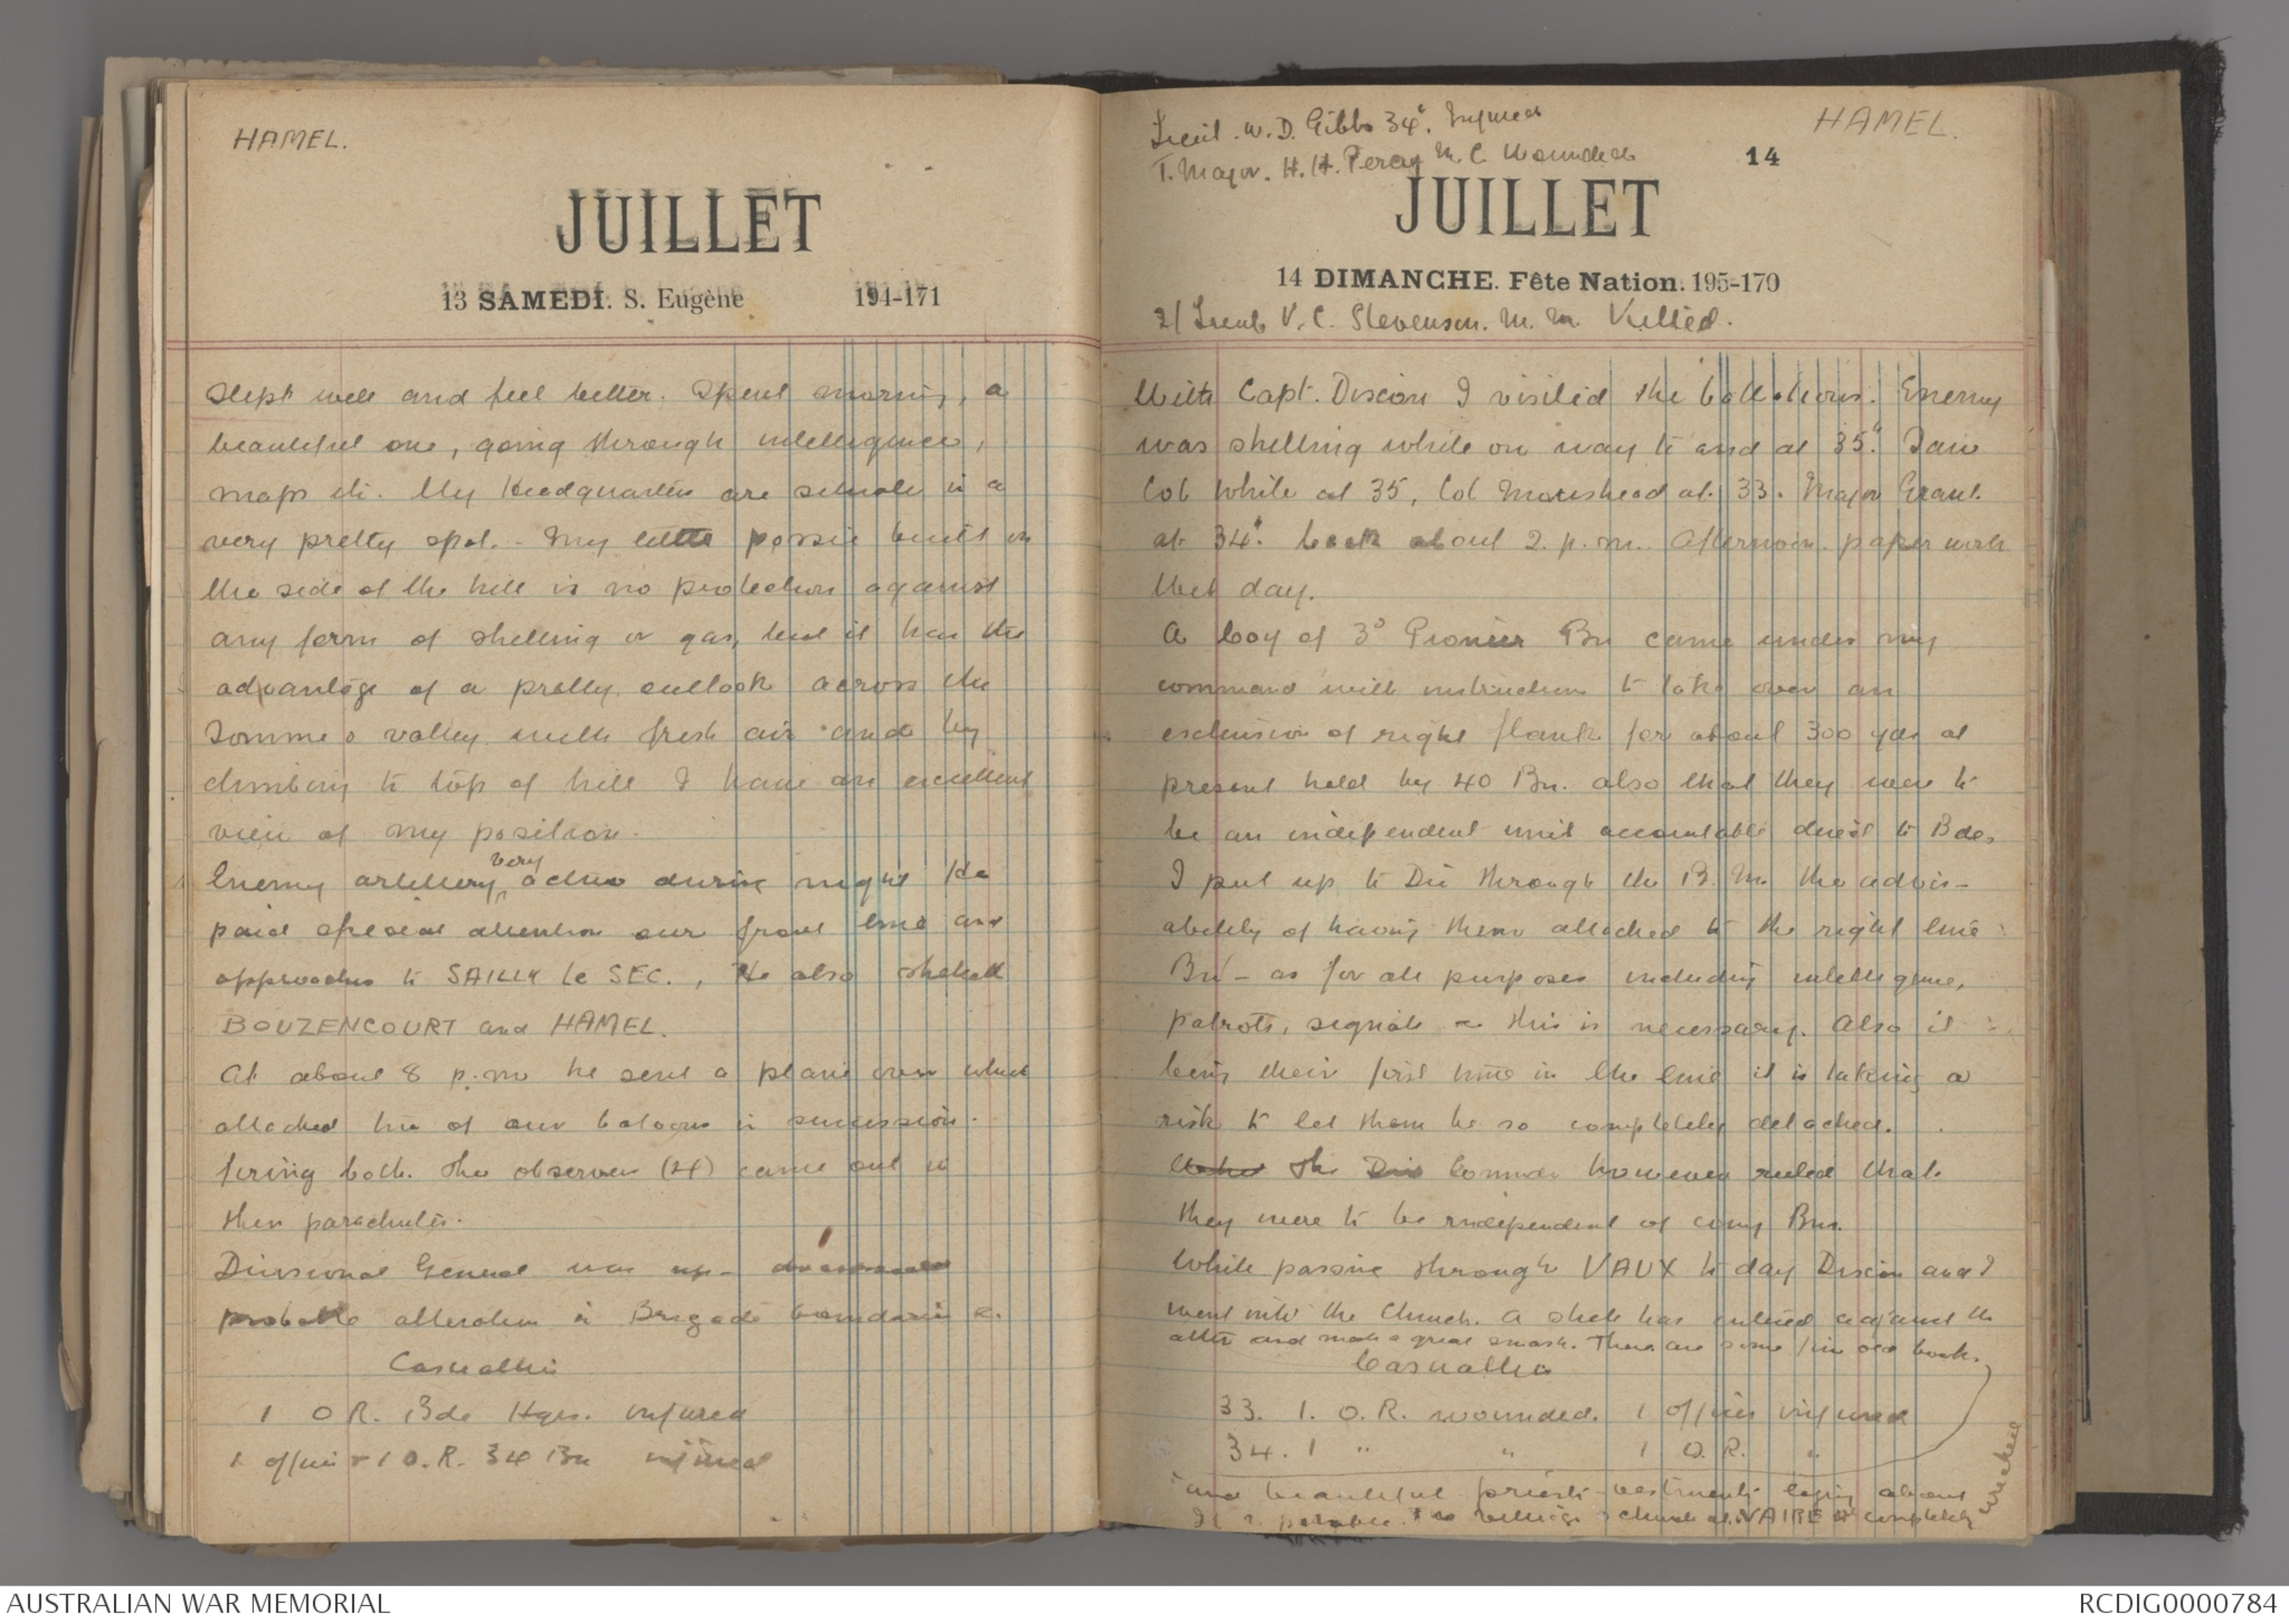 HAMEL.
JUILLET
13 SAMEDI. S. Eugène 194-171
Slept well and feel better. Spent morning, a
beautiful one, going through intelligence,
maps etc. My Headquarters are situate in a
very pretty spot. - My little possie built in
the side of the hill is no protection against
any form of shelling or gas, but it has the
advantage of a pretty outlook across the
Somme valley with fresh air and by
climbing to top of hill I have an excellent
view of my position.
Enemy artillery very active during night He
paid special attention our front line and
approaches to SAILLY le SEC., He also shelled
BOUZENCOURT and HAMEL.
At about 8 p.m he sent a plane over which
attacked two of our baloons in succession.
firing both. The observers (4) came out in
their parachutes.
Divisional General was up -
probable alteration in Brigade boundaries &.
Casualties
1 O R. Bde Hqrs. injured
1 officer & 1 O.R. 34 Bn injured
Lieut. W. D. Gibbs 34". Injured
T. Major. H. H. Percy M. C. Wounded
HAMEL.
14
JUILLET
14 DIMANCHE. Fête Nation. 195-170
2/ Lieut V. C. Stevenson. M. M Killed.
With Capt. Dixon I visited the battalions. Enemy
was shelling while on way to and at 35". Saw
Col White at 35, Col Morshead at 33. Major Grant
at 34". back about 2. p.m. Afternoon. paper work
Wet day.
A Coy of 3° Pionier Bn came under my
command with instruction to take over an
extension of right flank for about 300 yds at
present held by 40 Bn. also that they were to
be an independent unit accountable direct to Bde,
I put up to Div through the B. M. the advis-
ability of having them attached to the right line
Bn - as for all purposes including intelligence,
patrols, signals & this is necessary. Also it
being their first time in the line it is taking a
risk to let them be so completely detached.
The Div Comndr however ruled that
they were to be independent of any Bn.
While passing through VAUX to day Dixon and I
went into the Church. A shell has entered against the
alter and made a great smash. There are some fine old books
Casualties
33. 1. O. R. wounded. 1 officer injured
34. 1 " " 1 O. R. "
and beautiful priests vestments laying about
village church at VAIRE is completely
wrecked
AUSTRALIAN WAR MEMORIAL
RCDIG0000784